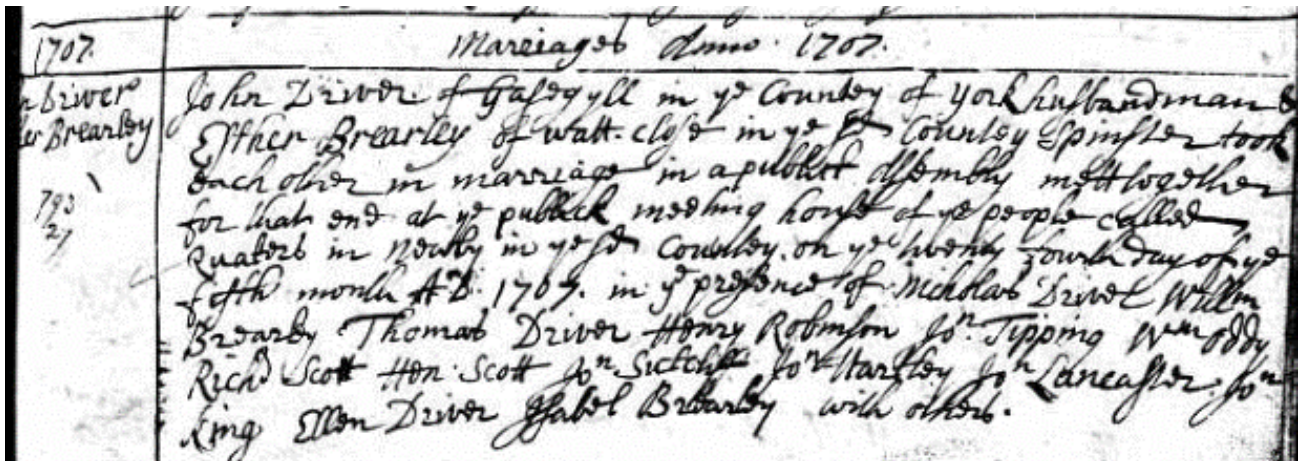 1707. Marriages Anno 1707.
Driver John Driver of Gasegyll in ye County of York husbandman &
Brearley Esther Brearley of Watt-close in ye sd County Spinster took
each other in marriage in a publick Assembly mett together
793 for that end at ye publick meeting house of ye people called
27 Quakers in Newby in ye sd County on ye twenty fourth day of ye
fifth month AD. 1707. in ye presence of Nicholas Driver Willm
Brearley Thomas Driver Henry Robinson Jon. Tipping Wm Oddy
Richd Scott Hen: Scott Jon Sutcliff Jon Hartley Jon Lancaster Jon
King Ellen Driver Isabel Brearley with others.